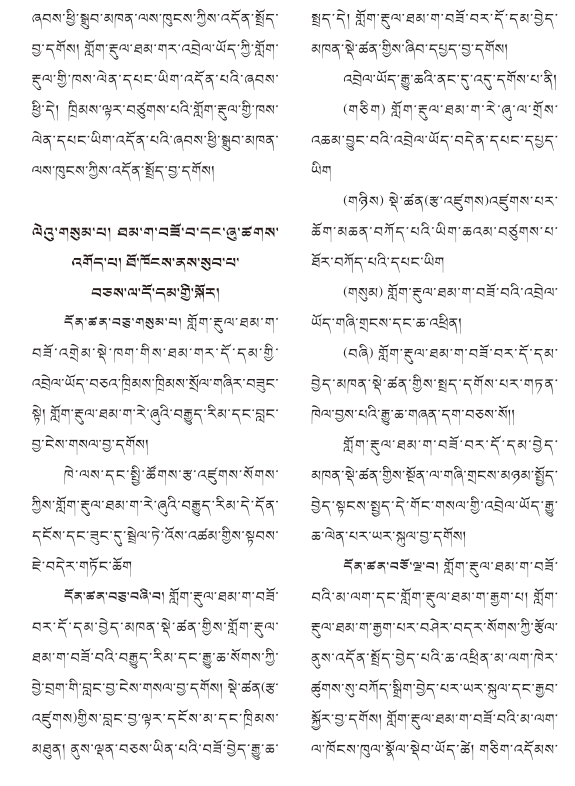 ཞབས་ཕྱི་སྒྲུབ་མཁན་ལས་ཁུངས་ཀྱིས་འདོན་སྤྲོད་
བྱ་དགོས། གློག་རྡུལ་ཐམ་གར་འབྲེལ་ཡོད་ཀྱི་གློག་
རྡུལ་གྱི་ཁས་ལེན་དཔང་ཡིག་འདོན་པའི་ཞབས་
ཕྱི་དེ། ཁྲིམས་ལྟར་བཙུགས་པའི་གློག་རྡུལ་གྱི་ཁས་
ལེན་དཔང་ཡིག་འདོན་པའི་ཞབས་ཕྱི་སྒྲུབ་མཁན་
ལས་ཁུངས་ཀྱིས་འདོན་སྤྲོད་བྱ་དགོས།
ལེའུ་གསུམ་པ། ཐམ་ག་བཟོ་བ་དང་ཞུ་ཚགས་
འགོད་པ། ཐོ་ཁོངས་ནས་སུབ་པ་
བཅས་ལ་དོ་དམ་གྱི་སྐོར།
དོན་ཚན་བཅུ་གསུམ་པ། གློག་རྡུལ་ཐམ་ག་
བཟོ་འགྲེམ་སྡེ་ཁག་གིས་ཐམ་གར་དོ་དམ་གྱི་
འབྲེལ་ཡོད་བཅའ་ཁྲིམས་ཁྲིམས་སྲོལ་གཞིར་བཟུང་
སྟེ། གློག་རྡུལ་ཐམ་ག་རེ་ཞུའི་བརྒྱུད་རིམ་དང་བླང་
བྱ་ངེས་གསལ་བྱ་དགོས།
ཁེ་ལས་དང་སྤྱི་ཚོགས་རྩ་འཛུགས་སོགས་
ཀྱིས་གློག་རྡུལ་ཐམ་ག་རེ་ཞུའི་བརྒྱུད་རིམ་དེ་དོན་
དངོས་དང་ཟུང་དུ་སྦྲེལ་ཏེ་འོས་འཚམ་གྱིས་སྟབས་
ཇེ་བདེར་གཏོང་ཆོག
དོན་ཚན་བཅུ་བཞི་བ། གློག་རྡུལ་ཐམ་ག་བཟོ་
བར་དོ་དམ་བྱེད་མཁན་སྡེ་ཚན་གྱིས་གློག་རྡུལ་
ཐམ་ག་བཟོ་བའི་བརྒྱུད་རིམ་དང་རྒྱུ་ཆ་སོགས་ཀྱི་
བྱེ་བྲག་གི་བླང་བྱ་ངེས་གསལ་བྱ་དགོས། སྡེ་ཚན(རྩ་
འཛུགས)གྱིས་བླང་བྱ་ལྟར་དངོས་མ་དང་ཁྲིམས་
མཐུན། ནུས་ལྡན་བཅས་ཡིན་པའི་བཟོ་བྱེད་རྒྱུ་ཆ་
སྤྲད་དེ། གློག་རྡུལ་ཐམ་ག་བཟོ་བར་དོ་དམ་བྱེད་
མཁན་སྡེ་ཚན་གྱིས་ཞིབ་དཔྱད་བྱ་དགོས།
འབྲེལ་ཡོད་རྒྱུ་ཆའི་ནང་དུ་འདུ་དགོས་པ་ནི།
(གཅིག) གློག་རྡུལ་ཐམ་ག་རེ་ཞུ་ལ་གྲོས་
འཆམ་བྱུང་བའི་འབྲེལ་ཡོད་བདེན་དཔང་དཔྱད་
ཡིག
(གཉིས) སྡེ་ཚན(རྩ་འཛུགས)འཛུགས་པར་
ཆོག་མཆན་བཀོད་པའི་ཡིག་ཆའམ་བཙུགས་པ་
ཐོར་བཀོད་པའི་དཔང་ཡིག
(གསུམ) གློག་རྡུལ་ཐམ་ག་བཟོ་བའི་འབྲེལ་
ཡོད་གཞི་གྲངས་དང་ཆ་འཕྲིན།
(བཞི) གློག་རྡུལ་ཐམ་ག་བཟོ་བར་དོ་དམ་
བྱེད་མཁན་སྡེ་ཚན་གྱིས་སྤྲད་དགོས་པར་གཏན་
ཁེལ་བྱས་པའི་རྒྱུ་ཆ་གཞན་དག་བཅས་སོ།།
གློག་རྡུལ་ཐམ་ག་བཟོ་བར་དོ་དམ་བྱེད་
མཁན་སྡེ་ཚན་གྱིས་སྔོན་ལ་གཞི་གྲངས་མཉམ་སྤྱོད་
བྱེད་སྟངས་སྤྱད་དེ་གོང་གསལ་གྱི་འབྲེལ་ཡོད་རྒྱུ་
ཆ་ལེན་པར་ཡར་སྐུལ་བྱ་དགོས།
དོན་ཚན་བཅོ་ལྔ་བ། གློག་རྡུལ་ཐམ་ག་བཟོ་
བའི་མ་ལག་དང་གློག་རྡུལ་ཐམ་ག་རྒྱག་པ། གློག་
རྡུལ་ཐམ་ག་རྒྱག་པར་བཤེར་བདར་སོགས་ཀྱི་རྩོལ་
ནུས་འདོན་སྤྲོད་བྱེད་པའི་ཆ་འཕྲིན་མ་ལག་ཁེར་
ཚུགས་སུ་བཀོད་སྒྲིག་བྱེད་པར་ཡར་སྐུལ་དང་རྒྱབ་
སྐྱོར་བྱ་དགོས། གློག་རྡུལ་ཐམ་ག་བཟོ་བའི་མ་ལག་
ལ་ཁོངས་ཁུལ་སྣོལ་སྡེབ་ཡོད་ཚེ། གཅིག་འདོམས་